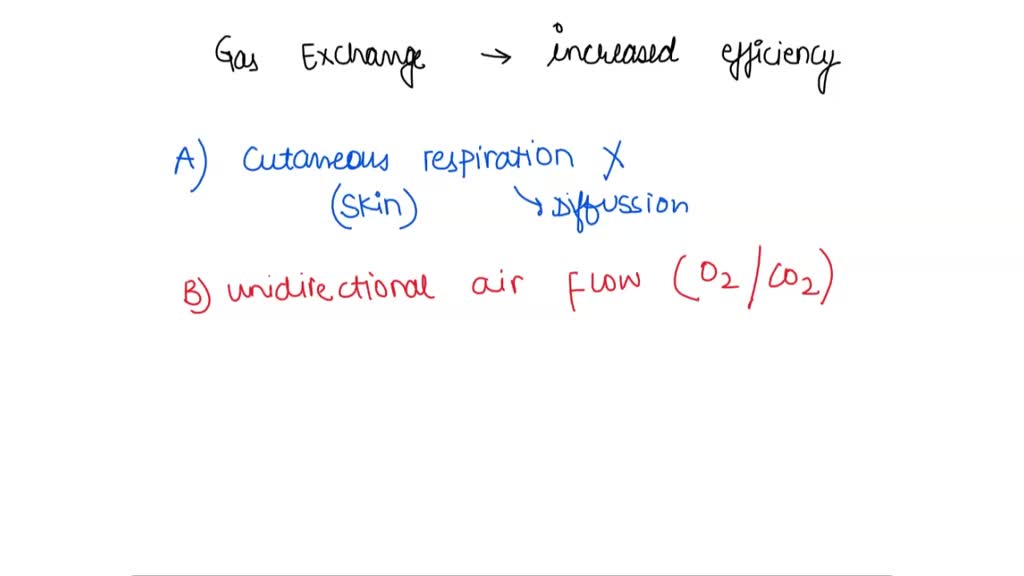 Gas Exchange → increased efficiency
A) Cutaneous respiration X
(Skin) ↘ Diffussion
B) unidirectional air flow (O2/CO2)